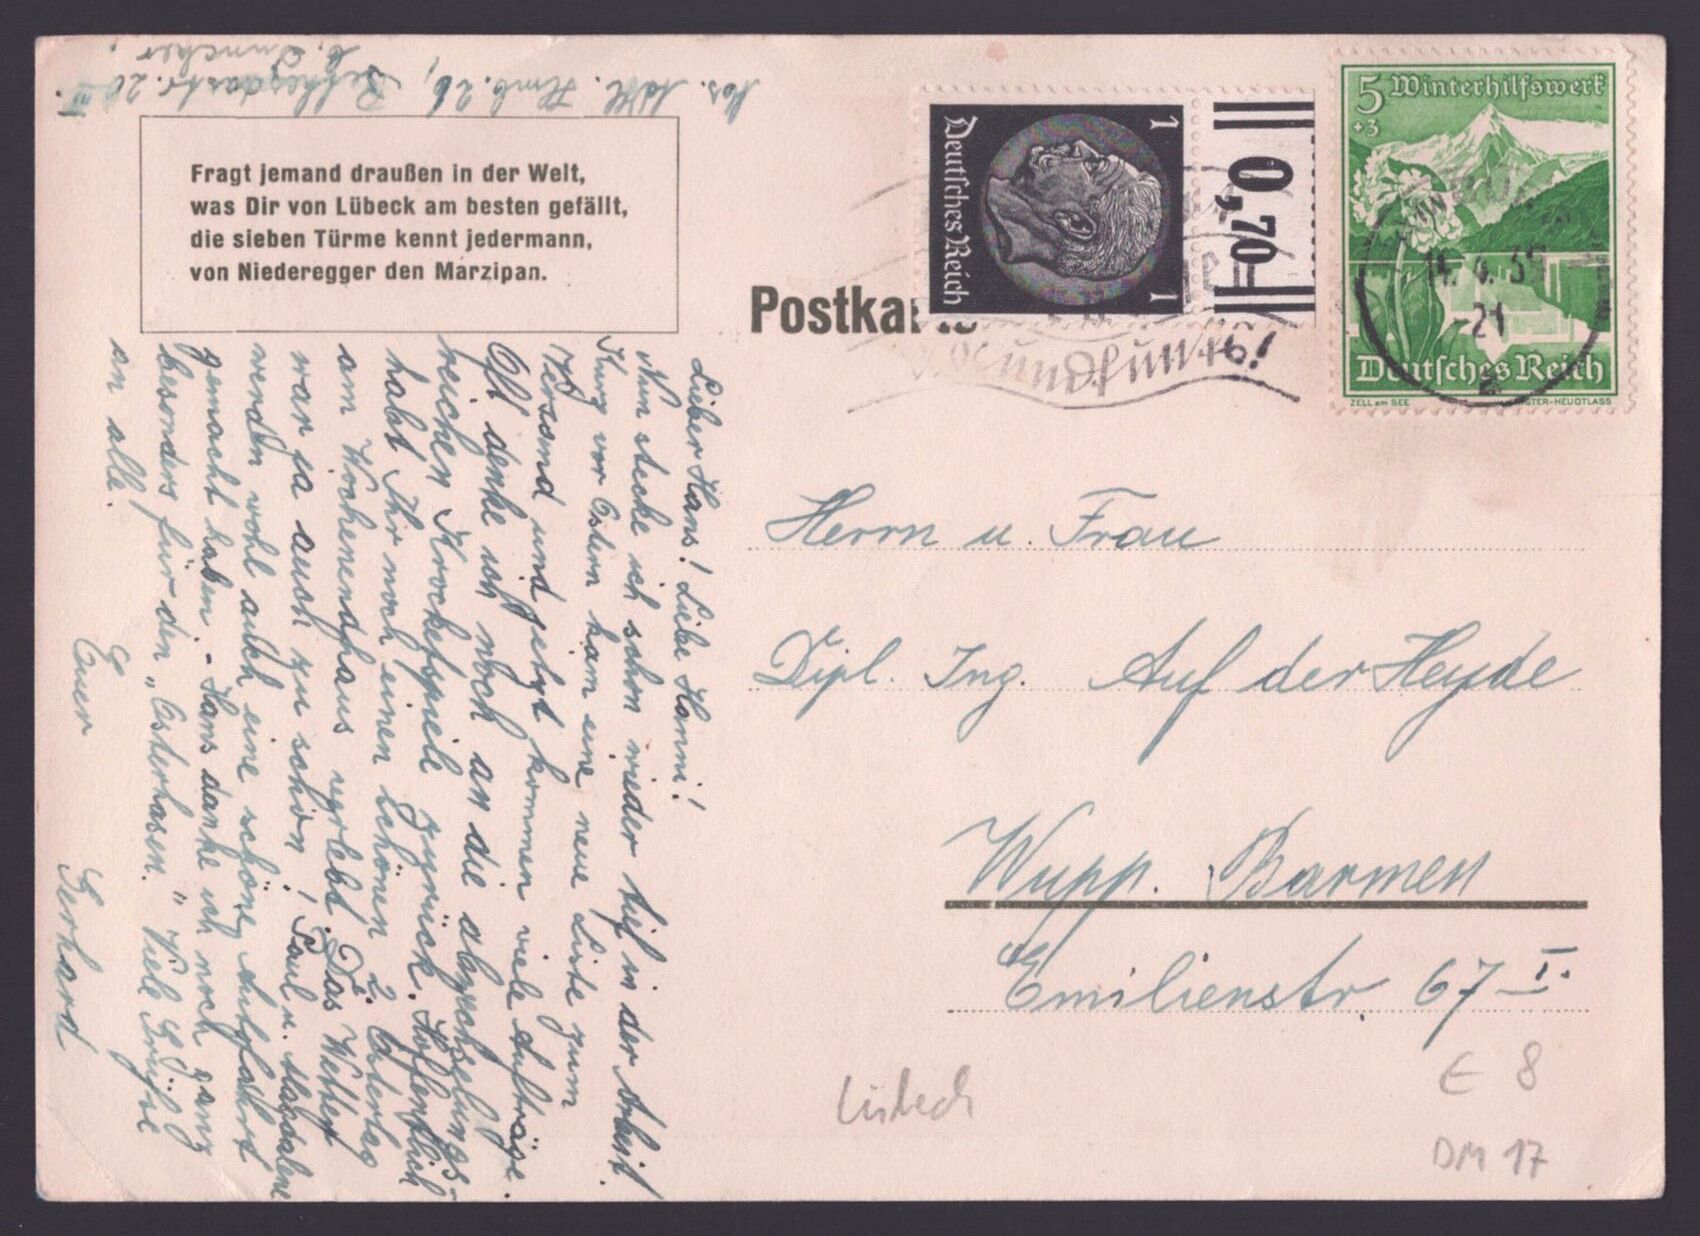 Hmb. 26, Bethesdastr. 20 III.
Fragt jemand draußen in der Welt,
was Dir von Lübeck am besten gefällt,
die sieben Türme kennt jedermann,
von Niederegger den Marzipan.
Postkarte
1 1
Deutsches Reich
0,70
5 Winterhilfswerk
+3
14.4.39
21
Deutsches Reich
ZELL am SEE
Lieber Hans! Liebe Hanni!
Nun stecke ich schon wieder tief in der Arbeit.
Kurz vor Ostern kam eine neue Liste zum
Versand und jetzt kommen viele Aufträge.
Oft denke ich noch an die abwechslungs-
reichen Krocketspiele zurück. Hoffentlich
habt Ihr noch einen schönen 2. Ostertag
am Wochenendhaus verlebt. Das Wetter
war ja auch zu schön! Paul u. Magdalene
werden wohl auch eine schöne Autofahrt
gemacht haben. - Hans danke ich noch ganz
besonders für den „Osterhasen." Viele Grüße
an alle.
Euer Gerhard
Herrn u. Frau
Dipl. Ing. Auf der Heyde
Wupp. Barmen
Emilienstr. 67 I.
Lübeck
E 8
DM 17